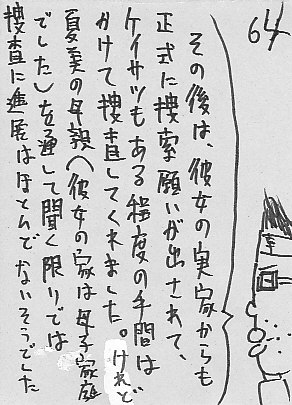 64
その後は、彼女の実家からも
正式に捜索願いが出されて、
ケイサツもある程度の手間は
かけて捜査してくれました。けれど
夏美の母親(彼女の家は母子家庭
でした)を通して聞く限りでは
捜査に進展はほとんどないそうでした